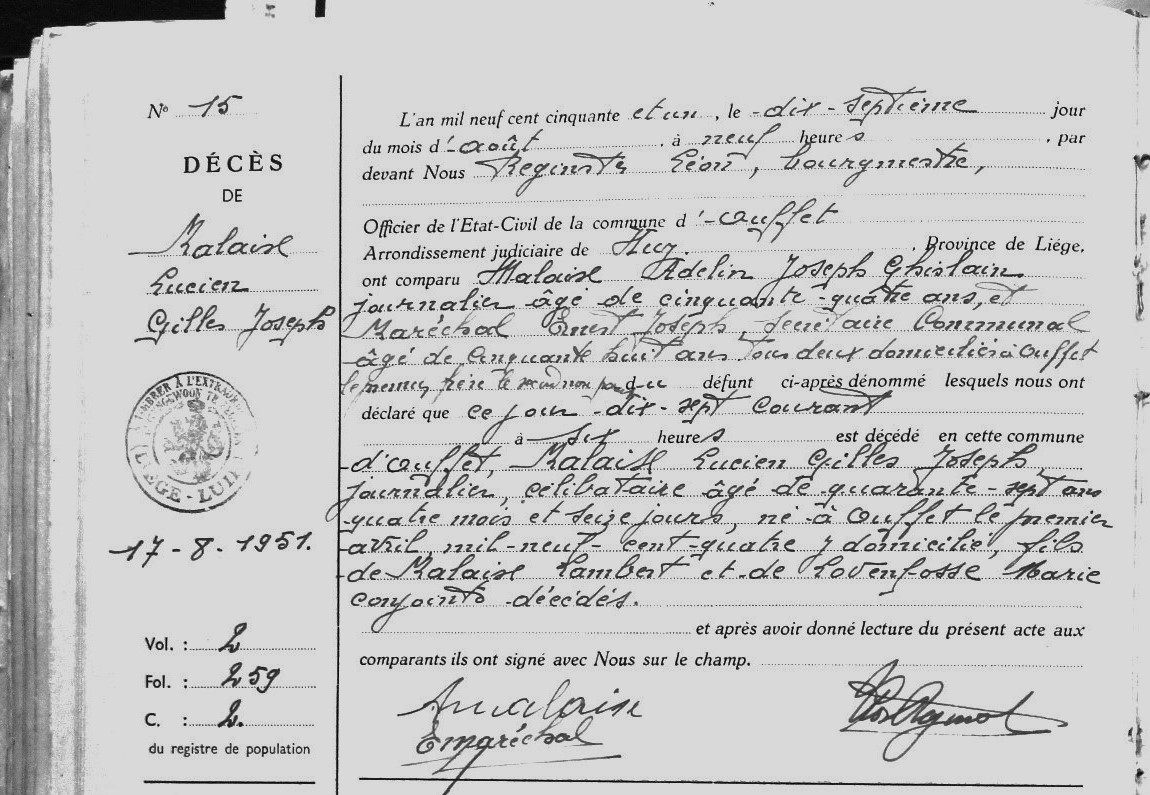 N° 15
DÉCÈS
DE
Malaise
Lucien
Gilles Joseph
17-8-1951.
Vol. : 2
Fol. : 259
C. : 2.
du registre de population
L'an mil neuf cent cinquante et un, le dix-septième jour
du mois d'août, à neuf heures, par
devant Nous Léon, bourgmestre,
Officier de l'Etat-Civil de la commune d'Ouffet
Arrondissement judiciaire de Huy, Province de Liége,
ont comparu Malaise Adelin Joseph Ghislain
journalier âgé de cinquante-quatre ans, et
Maréchal Ernest Joseph, secrétaire Communal
âgé de cinquante huit ans tous deux domiciliés à Ouffet
le premier frère le second non parent du défunt ci-après dénommé lesquels nous ont
déclaré que ce jour dix-sept courant
à six heures est décédé en cette commune
d'Ouffet, Malaise Lucien Gilles Joseph
journalier, célibataire âgé de quarante-sept ans
quatre mois et seize jours, né à Ouffet le premier
avril mil-neuf-cent-quatre y domicilié, fils
de Malaise Lambert et de Lovenfosse Marie
conjoints décédés.
et après avoir donné lecture du présent acte aux
comparants ils ont signé avec Nous sur le champ.
A Malaise
E Maréchal